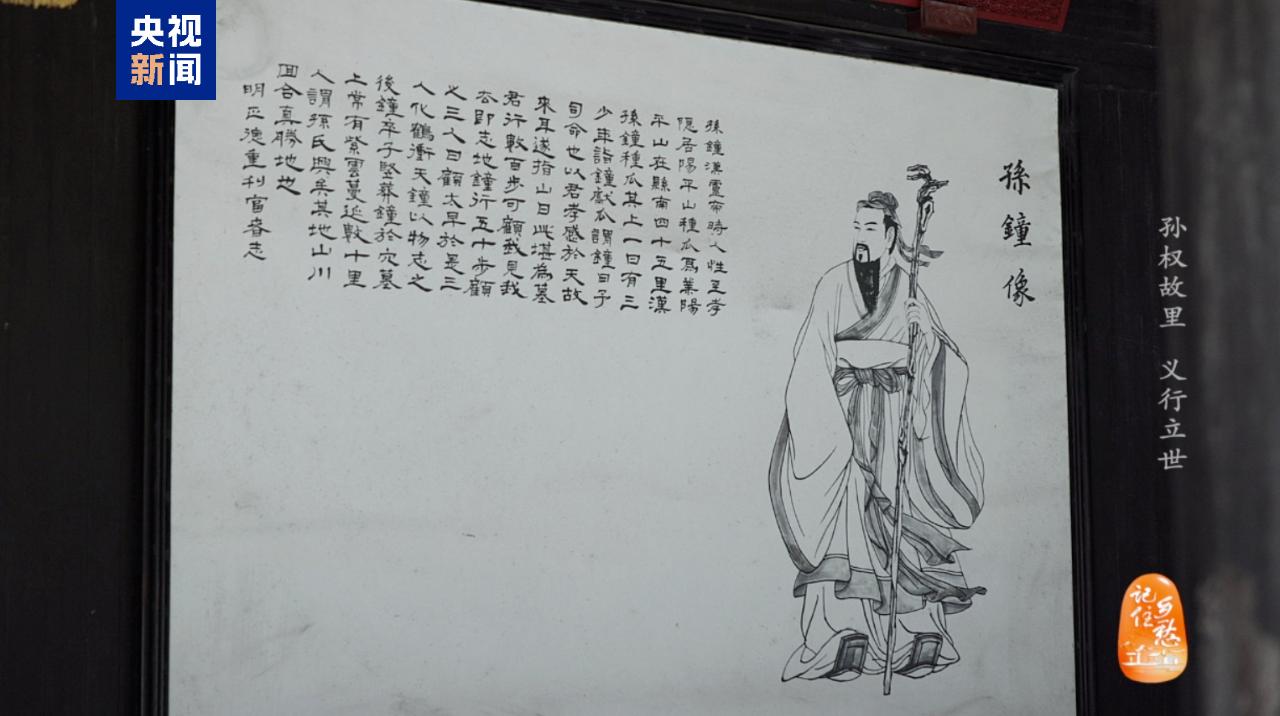 央视
新闻
孫鐘像
孫鐘漢靈帝時人性至孝
隱居陽平山種瓜爲業陽
平山在縣南四十五里漢
孫鐘種瓜其上一日有三
少年詣鐘獻瓜謂鐘曰子
司命也以君孝感於天故
來耳遂指山曰此堪為墓
君行數百步可顧我見我
去即志地鐘行五十步顧
之三人曰顧太早於是三
人化鶴衝天鐘以物志之
後鐘卒子堅葬鐘於穴墓
上常有紫雲蔓延數十里
人謂孫氏興矣其地山川
回合真勝地也
明正德重利富春志
孙权故里 义行立世
记住乡愁